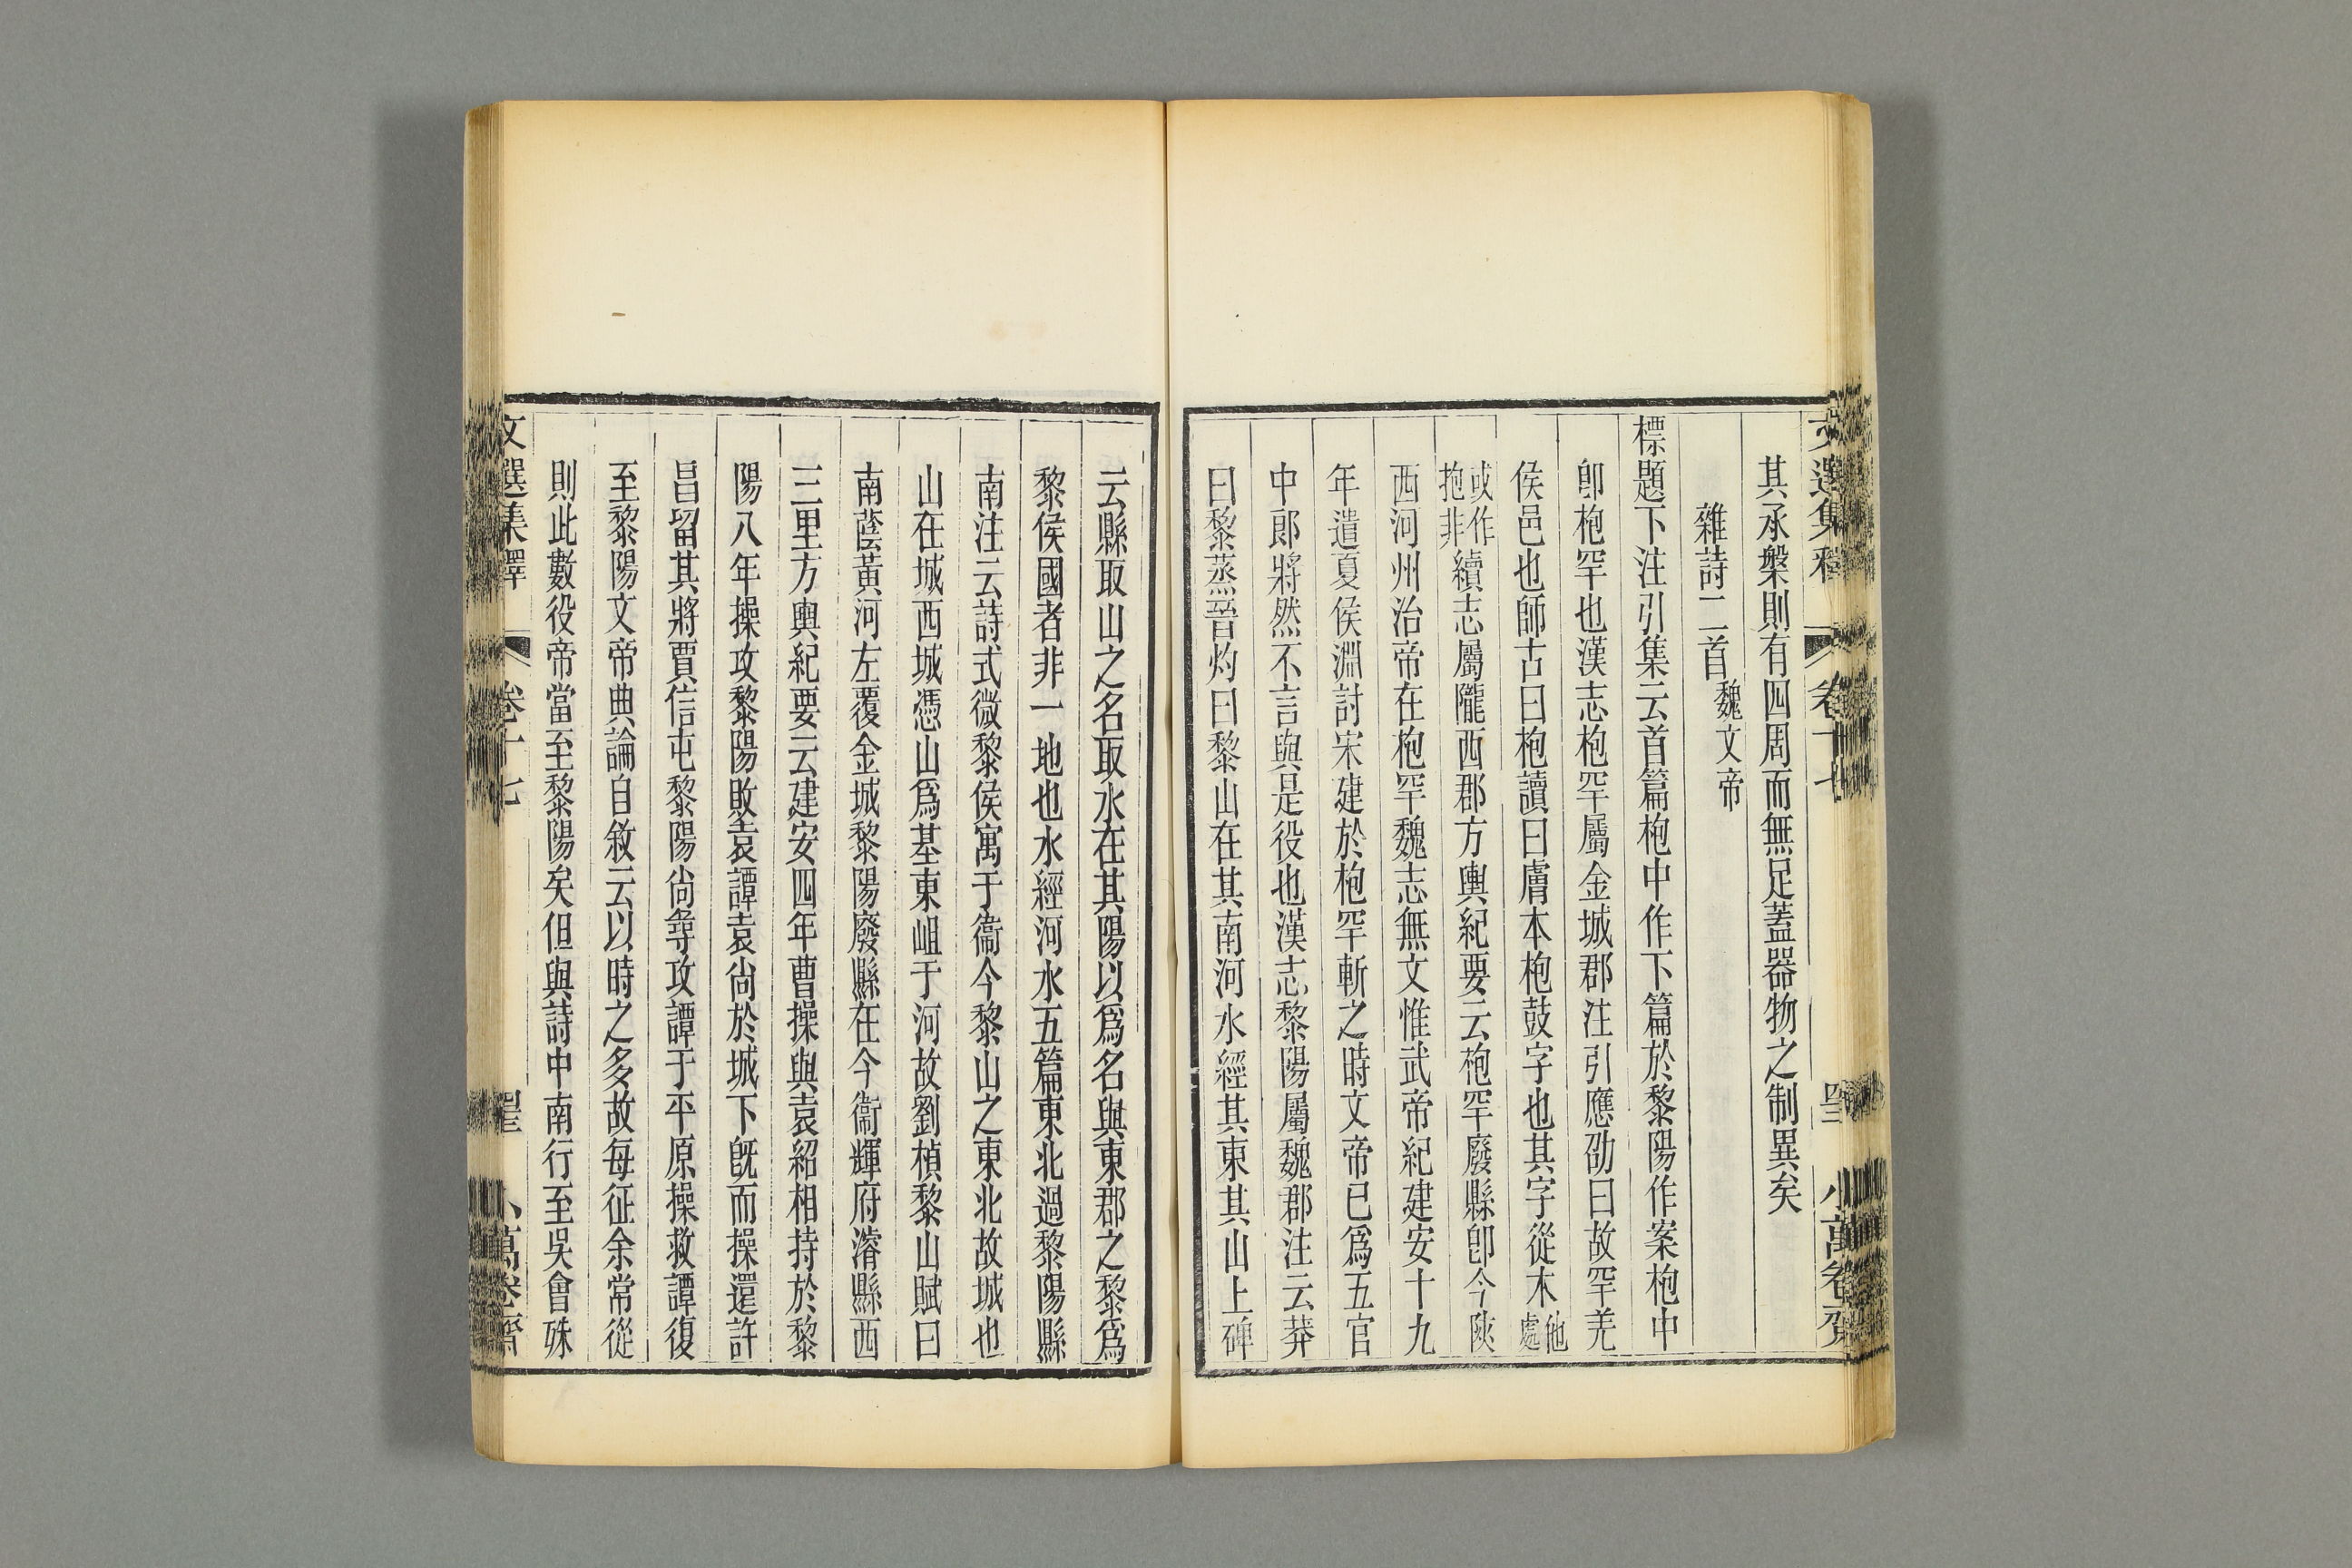 文選集釋 卷十七 小萬卷齋
其承槃則有四周而無足蓋器物之制異矣
雜詩二首魏文帝
標題下注引集云首篇枹中作下篇於黎陽作案枹中
卽枹罕也漢志枹罕屬金城郡注引應劭曰故罕羌
侯邑也師古曰枹讀曰膚本枹鼓字也其字從木他處
或作抱非續志屬隴西郡方輿紀要云枹罕廢縣卽今陝
西河州治帝在枹罕魏志無文惟武帝紀建安十九
年遣夏侯淵討宋建於枹罕斬之時文帝已爲五官
中郞將然不言與是役也漢志黎陽屬魏郡注云莽
曰黎蒸晉灼曰黎山在其南河水經其東其山上碑
云縣取山之名取水在其陽以爲名與東郡之黎爲
黎侯國者非一地也水經河水五篇東北過黎陽縣
南注云詩式微黎侯寓于衞今黎山之東北故城也
山在城西城憑山爲基東岨于河故劉楨黎山賦曰
南蔭黃河左覆金城黎陽廢縣在今衞輝府濬縣西
三里方輿紀要云建安四年曹操與袁紹相持於黎
陽八年操攻黎陽敗袁譚袁尙於城下旣而操還許
昌留其將賈信屯黎陽尙尋攻譚于平原操救譚復
至黎陽文帝典論自敘云以時之多故每征余常從
則此數役帝當至黎陽矣但與詩中南行至吳會殊
文選集釋 卷十七 小萬卷齋